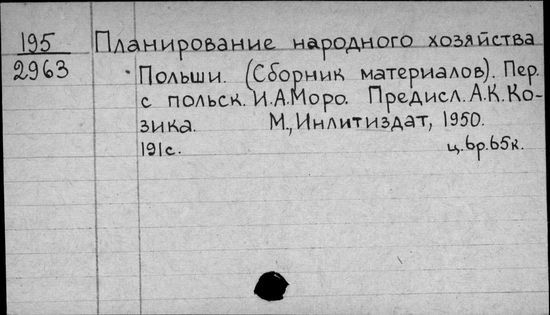 195 Планирование народного хозяйства
2963 Польши. (Сборник материалов). Пер.
с польск. И.А.Моро. Предисл. А.К.Ко-
зика. М., Инлитиздат, 1950.
191с. ц.6р.65к.